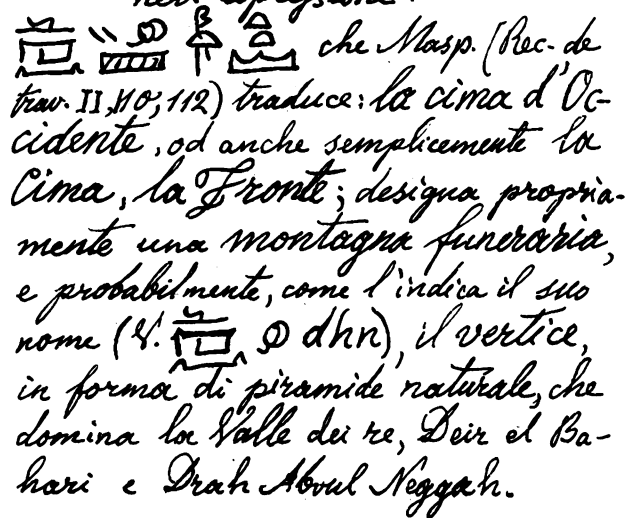 nell'espressione:
che Masp. (Rec. de
trav. II, 110, 112) traduce: la cima d'Oc-
cidente, od anche semplicemente la
Cima, la Fronte; designa propria-
mente una montagna funeraria,
e probabilmente, come l'indica il suo
nome (V. dhn), il vertice,
in forma di piramide naturale, che
domina la Valle dei re, Deir el Ba-
hari e Drah Aboul Neggah.